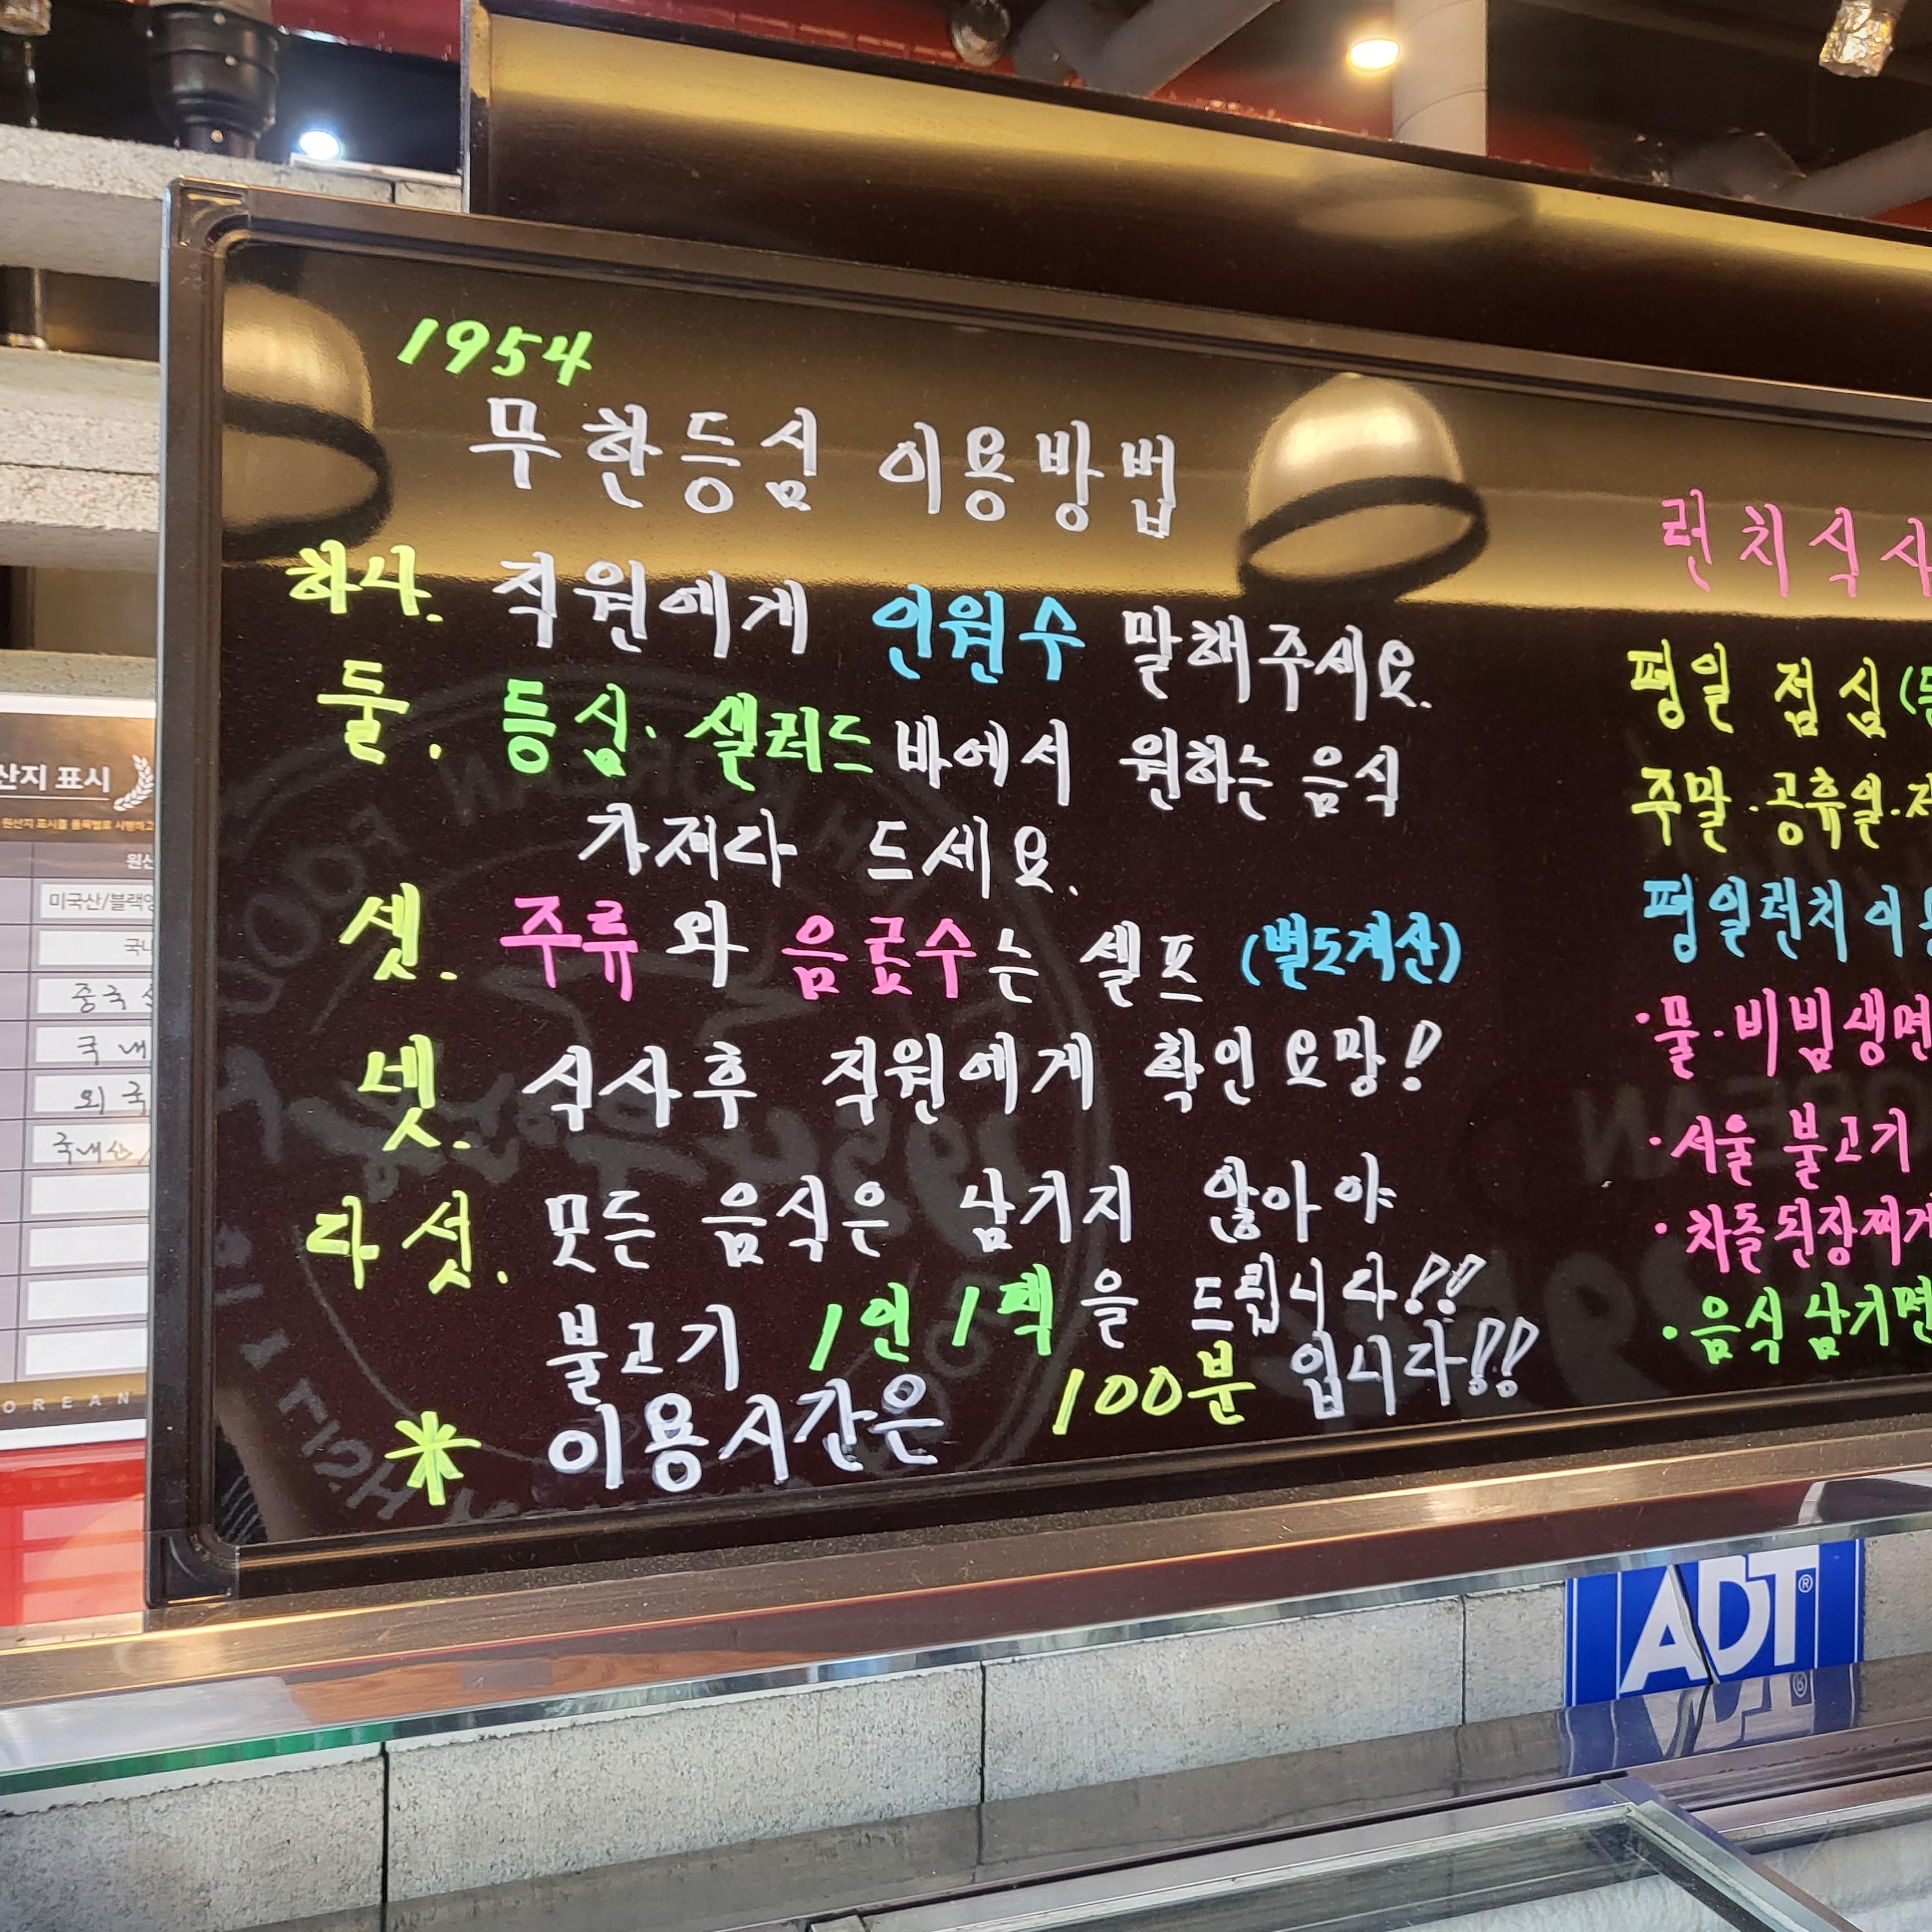 1954
무한등심 이용방법
하나. 직원에게 인원수 말해주세요.
둘. 등심·샐러드바에서 원하는 음식
가져다 드세요.
셋. 주류와 음료수는 셀프 (별도계산)
넷. 식사후 직원에게 확인요망!
다섯. 모든 음식은 남기지 않아야
불고기 1인 1팩을 드립니다!!
* 이용시간은 100분 입니다!!
런치식사
평일 점심
주말·공휴일·
평일런치
·물·비빔생면
·서울 불고기
·차돌된장찌개
·음식 남기면
산지 표시
미국산/블랙앵
중국
국내
외국
국내산/
OREAN
ADT